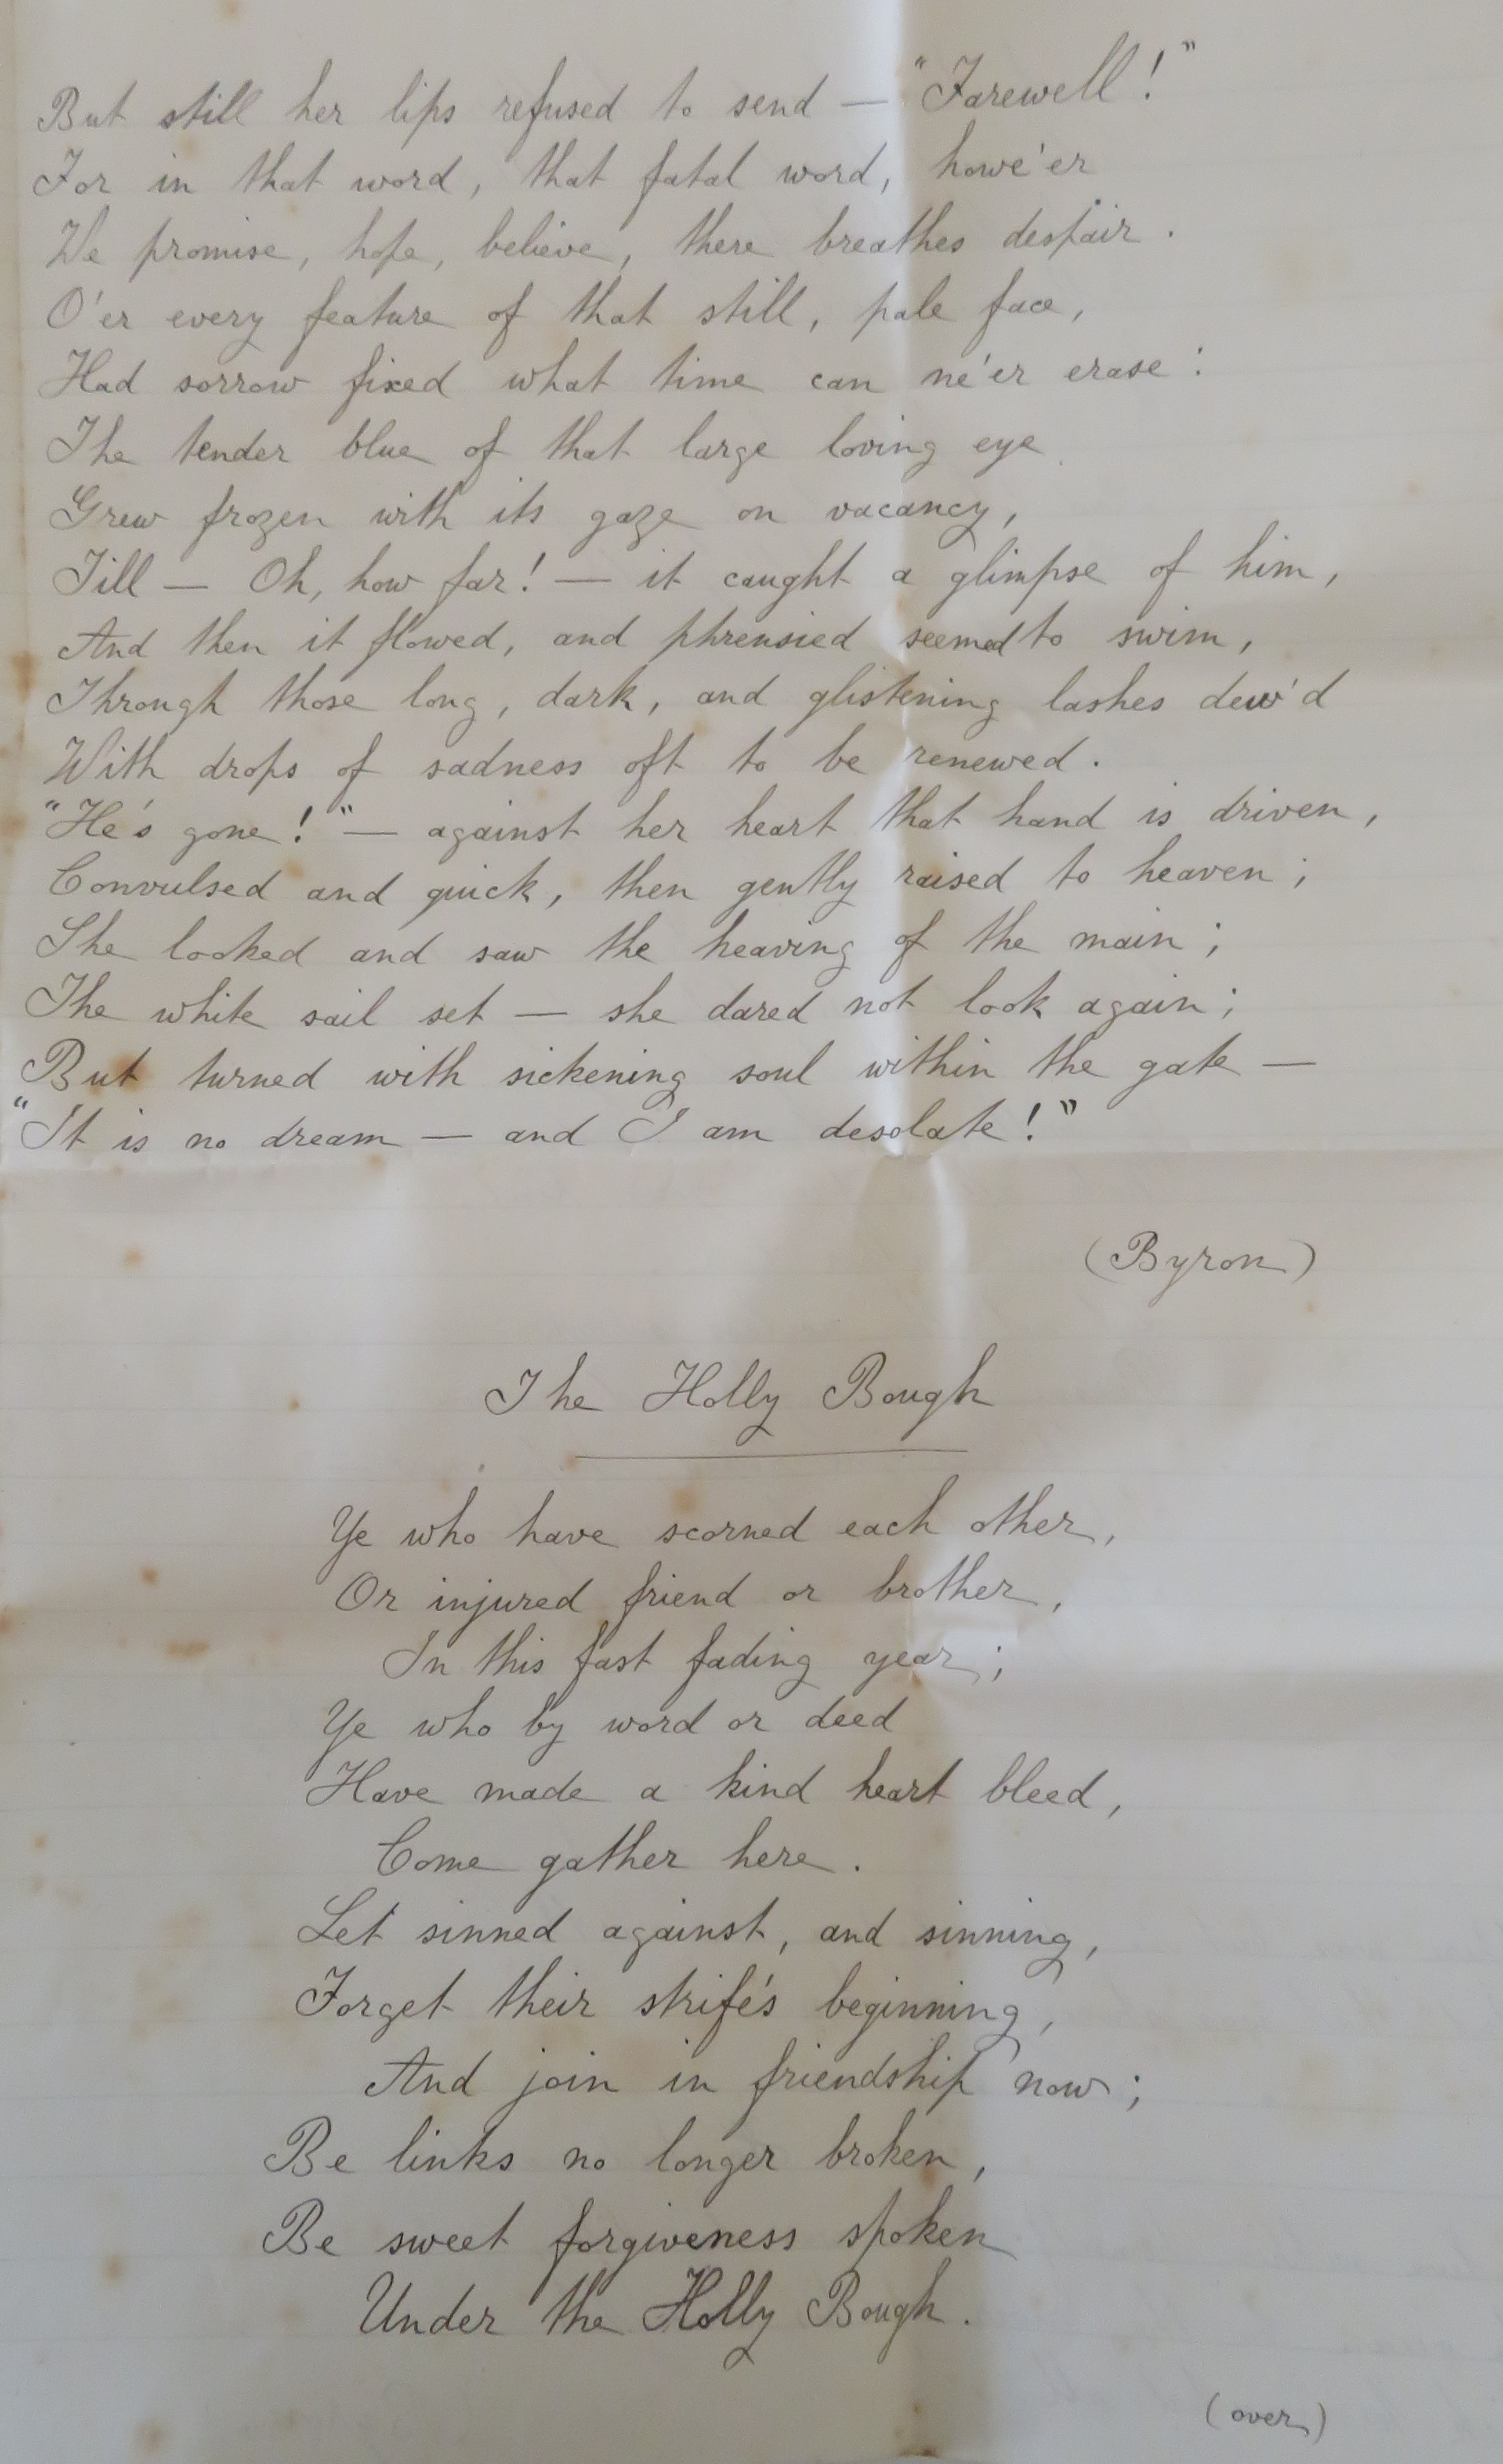 But still her lips refused to send — "Farewell!"
For in that word, that fatal word, howe'er
We promise, hope, believe, there breathes despair.
O'er every feature of that still, pale face,
Had sorrow fixed what time can ne'er erase:
The tender blue of that large loving eye
Grew frozen with its gaze on vacancy,
Till — Oh, how far! — it caught a glimpse of him,
And then it flowed, and phrensied seemed to swim,
Through those long, dark, and glistening lashes dew'd
With drops of sadness oft to be renewed.
"He's gone!" — against her heart that hand is driven,
Convulsed and quick, then gently raised to heaven;
She looked and saw the heaving of the main;
The white sail set — she dared not look again;
But turned with sickening soul within the gate —
"It is no dream — and I am desolate!"
(Byron)
The Holly Bough
Ye who have scorned each other,
Or injured friend or brother,
In this fast fading year;
Ye who by word or deed
Have made a kind heart bleed,
Come gather here.
Let sinned against, and sinning,
Forget their strife's beginning,
And join in friendship now;
Be links no longer broken,
Be sweet forgiveness spoken
Under the Holly Bough.
(over)